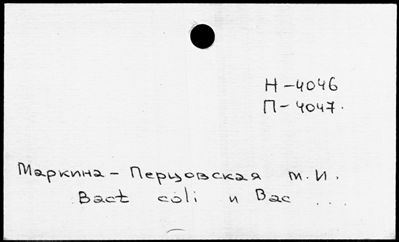 Н-4046
П-4047.
Маркина-Перцовская т.И.
Bact coli и Bac ...